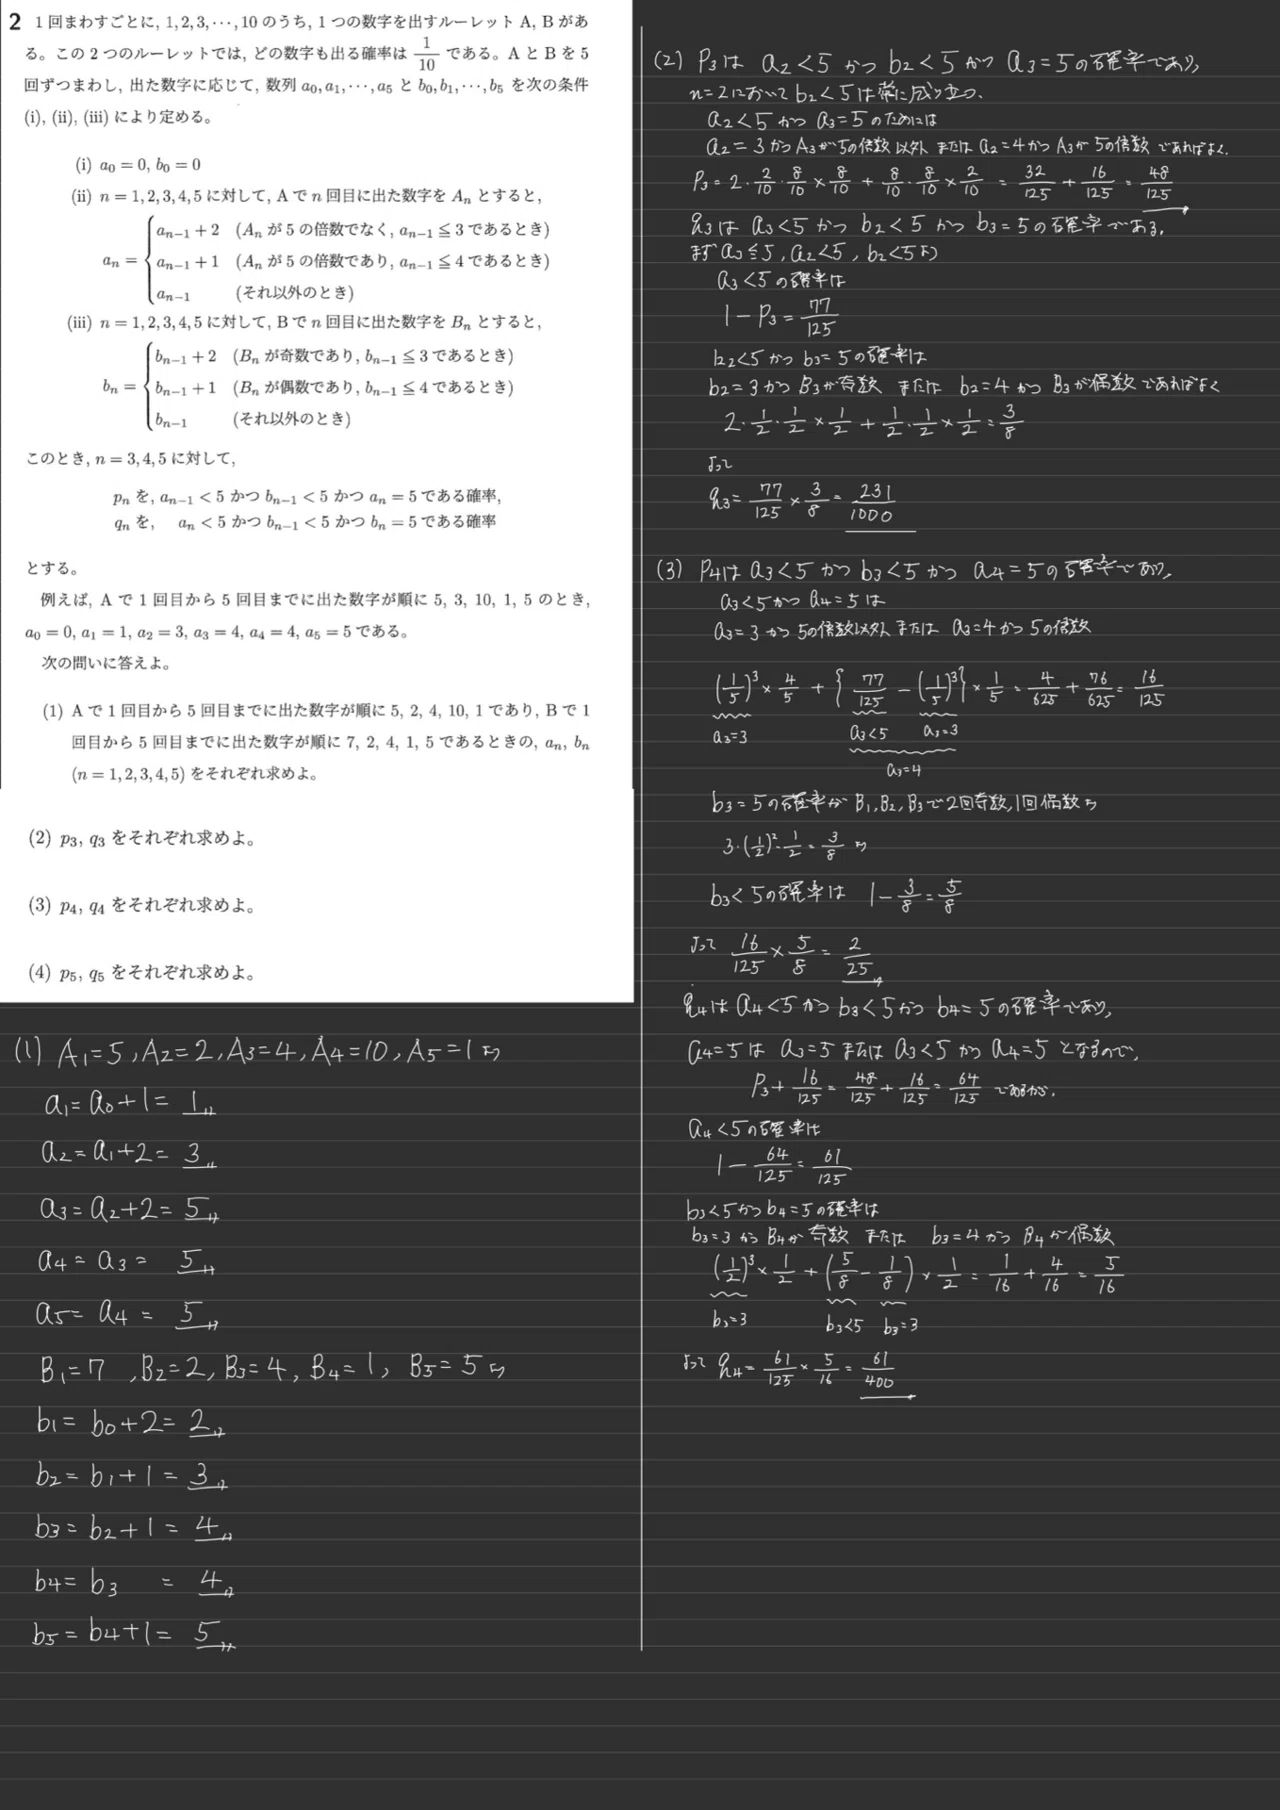 2 1回まわすごとに, 1, 2, 3, ···, 10 のうち, 1 つの数字を出すルーレット A, B があ
る。この 2 つのルーレットでは, どの数字も出る確率は 1/10 である。A と B を 5
回ずつまわし, 出た数字に応じて, 数列 a₀, a₁, ···, a₅ と b₀, b₁, ···, b₅ を次の条件
(i), (ii), (iii) により定める。
(i) a₀ = 0, b₀ = 0
(ii) n = 1, 2, 3, 4, 5 に対して, A で n 回目に出た数字を Aₙ とすると,
aₙ = { aₙ₋₁ + 2 (Aₙ が 5 の倍数でなく, aₙ₋₁ ≦ 3 であるとき)
aₙ₋₁ + 1 (Aₙ が 5 の倍数であり, aₙ₋₁ ≦ 4 であるとき)
aₙ₋₁ (それ以外のとき)
(iii) n = 1, 2, 3, 4, 5 に対して, B で n 回目に出た数字を Bₙ とすると,
bₙ = { bₙ₋₁ + 2 (Bₙ が奇数であり, bₙ₋₁ ≦ 3 であるとき)
bₙ₋₁ + 1 (Bₙ が偶数であり, bₙ₋₁ ≦ 4 であるとき)
bₙ₋₁ (それ以外のとき)
このとき, n = 3, 4, 5 に対して,
pₙ を, aₙ₋₁ < 5 かつ bₙ₋₁ < 5 かつ aₙ = 5 である確率,
qₙ を, aₙ < 5 かつ bₙ₋₁ < 5 かつ bₙ = 5 である確率
とする。
例えば, A で 1 回目から 5 回目までに出た数字が順に 5, 3, 10, 1, 5 のとき,
a₀ = 0, a₁ = 1, a₂ = 3, a₃ = 4, a₄ = 4, a₅ = 5 である。
次の問いに答えよ。
(1) A で 1 回目から 5 回目までに出た数字が順に 5, 2, 4, 10, 1 であり, B で 1
回目から 5 回目までに出た数字が順に 7, 2, 4, 1, 5 であるときの, aₙ, bₙ
(n = 1, 2, 3, 4, 5) をそれぞれ求めよ。
(2) p₃, q₃ をそれぞれ求めよ。
(3) p₄, q₄ をそれぞれ求めよ。
(4) p₅, q₅ をそれぞれ求めよ。
(1) A₁=5, A₂=2, A₃=4, A₄=10, A₅=1 より
a₁=a₀+1=1
a₂=a₁+2=3
a₃=a₂+2=5
a₄=a₃=5
a₅=a₄=5
B₁=7, B₂=2, B₃=4, B₄=1, B₅=5 より
b₁=b₀+2=2
b₂=b₁+1=3
b₃=b₂+1=4
b₄=b₃ =4
b₅=b₄+1=5
(2) P₃は a₂<5 かつ b₂<5 かつ a₃=5 の確率であり,
n=2において b₂<5は常に成り立つ.
a₂<5 かつ a₃=5のためには
a₂=3 かつ A₃が5の倍数以外 または a₂=4かつ A₃が 5の倍数 であればよく.
P₃=2・2/10・8/10×8/10+8/10・8/10×2/10=32/125+16/125=48/125
q₃は a₃<5 かつ b₂<5 かつ b₃=5 の確率である.
まず a₃≦5, a₂<5, b₂<5より
a₃<5 の確率は
1-P₃=77/125
b₂<5 かつ b₃=5 の確率は
b₂=3 かつ B₃が奇数 または b₂=4 かつ B₃が偶数 であればよく
2・1/2・1/2×1/2+1/2・1/2×1/2=3/8
よって
q₃=77/125×3/8=231/1000
(3) P₄は a₃<5 かつ b₃<5 かつ a₄=5 の確率であり,
a₃<5かつ a₄=5 は
a₃=3 かつ 5の倍数以外 または a₃=4 かつ 5の倍数
(1/5)³×4/5+{77/125-(1/5)³}×1/5=4/625+76/625=16/125
a₃=3 a₃<5 a₃=3
a₃=4
b₃=5 の確率が B₁, B₂, B₃で2回奇数, 1回偶数より
3・(1/2)²・1/2=3/8 より
b₃<5 の確率は 1-3/8=5/8
よって 16/125×5/8=2/25
q₄は a₄<5 かつ b₃<5 かつ b₄=5 の確率であり,
a₄=5 は a₃=5 または a₃<5 かつ a₄=5 となるので,
P₃+16/125=48/125+16/125=64/125 であるから,
a₄<5の確率は
1-64/125=61/125
b₃<5かつ b₄=5 の確率は
b₃=3 かつ B₄が 奇数 または b₃=4 かつ B₄が 偶数
(1/2)³×1/2+(5/8-1/8)×1/2=1/16+4/16=5/16
b₃=3 b₃<5 b₃=3
よって q₄=61/125×5/16=61/400